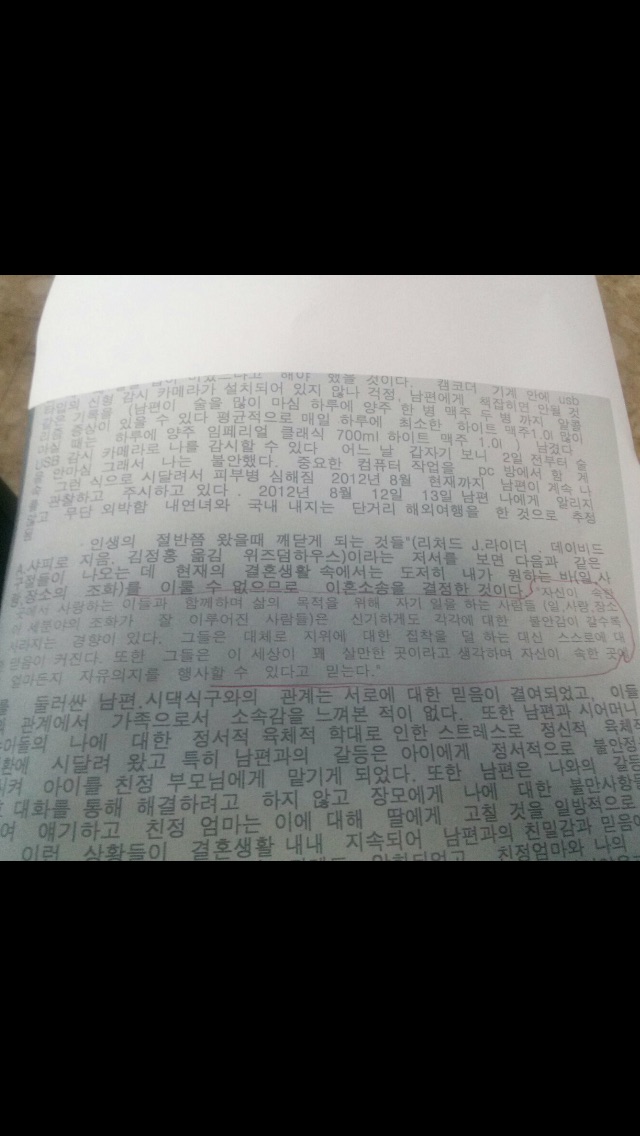 해야 했을 것이다. 캠코더 기계 안에 usb
신형 감시 카메라가 설치되어 있지 않나 걱정, 남편에게 채집히면 안될 것
(남편이 술을 많이 마심 하루에 양주 한 병 맥주 두 병 까지 알콜
증상이 있을 수 있다 평균적으로 매일 하루에 최소한 하이트 맥주1.0l 많이
마실 때는 하루에 양주 임페리얼 클래식 700ml 하이트 맥주 1.0l 남겼다
USB 감시 카메라로 나를 감시할 수 있다 어느 날 갑자기 보니 2일 전부터 술
안마심 그래서 나는 불안했다. 중요한 컴퓨터 작업을 pc 방에서 함 게
그런 식으로 시달려서 피부병 심해짐 2012년 8월 현재까지 남편이 계속 나
관찰하고 주시하고 있다. 2012년 8월 12일 13일 남편 나에게 알리지
고 무단 외박함 내연녀와 국내 내지는 단거리 해외여행을 한 것으로 추정
인생의 절반쯤 왔을때 깨닫게 되는 것들"(리처드 J.라이더 데이비드
A.샤피로 지음, 김정홍 옮김 위즈덤하우스)이라는 저서를 보면 다음과 같은
구절들이 나오는 데 현재의 결혼생활 속에서는 도저히 내가 원하는 바(일.사
랑.장소의 조화)를 이룰 수 없으므로 이혼소송을 결정한 것이다. "자신이 속한
곳에서 사랑하는 이들과 함께하며 삶의 목적을 위해 자기 일을 하는 사람들 (일.사랑.장소
의 세분야의 조화가 잘 이루어진 사람들)은 신기하게도 각각에 대한 불안감이 갈수록
사라지는 경향이 있다. 그들은 대체로 지위에 대한 집착을 덜 하는 대신 스스로에 대
믿음이 커진다. 또한 그들은 이 세상이 꽤 살만한 곳이라고 생각하며 자신이 속한 곳에
얼마든지 자유의지를 행사할 수 있다고 믿는다."
를 둘러싼 남편.시댁식구와의 관계는 서로에 대한 믿음이 결여되었고, 이들
관계에서 가족으로서 소속감을 느껴본 적이 없다. 또한 남편과 시어머니
나에 대한 정서적 육체적 학대로 인한 스트레스로 정신적 육체
시달려 왔고 특히 남편과의 갈등은 아이에게 정서적으로 불안정
아이를 친정 부모님에게 맡기게 되었다. 또한 남편은 나와의 갈등
대화를 통해 해결하려고 하지 않고 장모에게 나에 대한 불만사항
여 얘기하고 친정 엄마는 이에 대해 딸에게 고칠 것을 일방적으로
이런 상황들이 결혼생활 내내 지속되어 남편과의 친밀감과 믿음
친정엄마와 나의